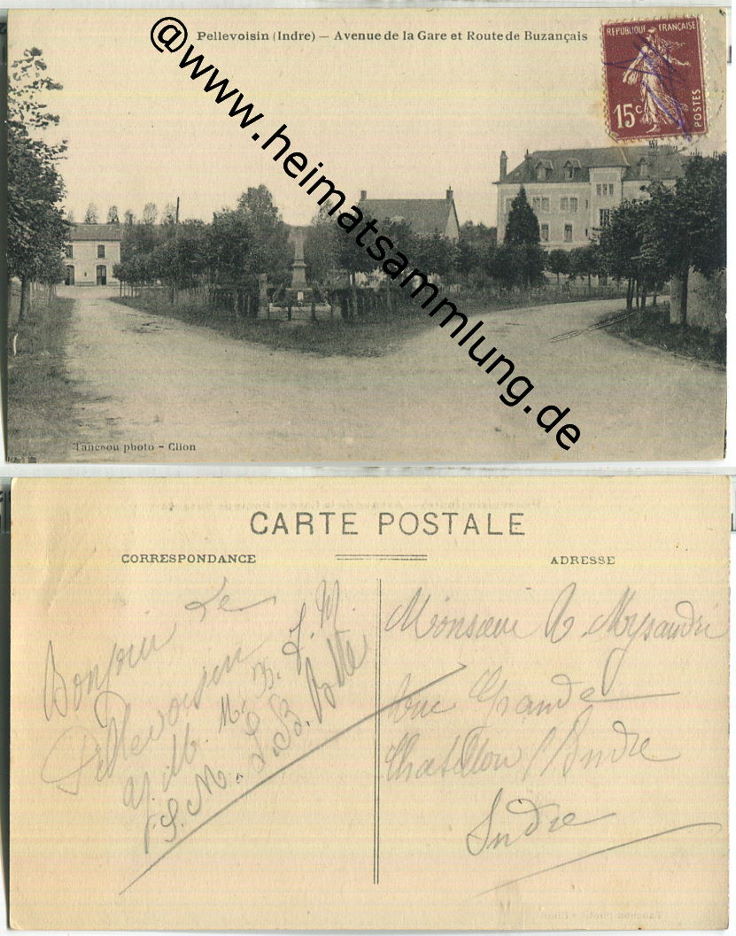 Pellevoisin (Indre) — Avenue de la Gare et Route de Buzançais
REPUBLIQUE FRANÇAISE
15c
POSTES
@www.heimatsammlung.de
Tancnou photo - Clion
CARTE POSTALE
CORRESPONDANCE
ADRESSE
Bonjour de
Pellevoisin
Y. M. M. B. J. M.
S. M. L. B.
Monsieur
Rue Grande
Chatillon s/Indre
Indre